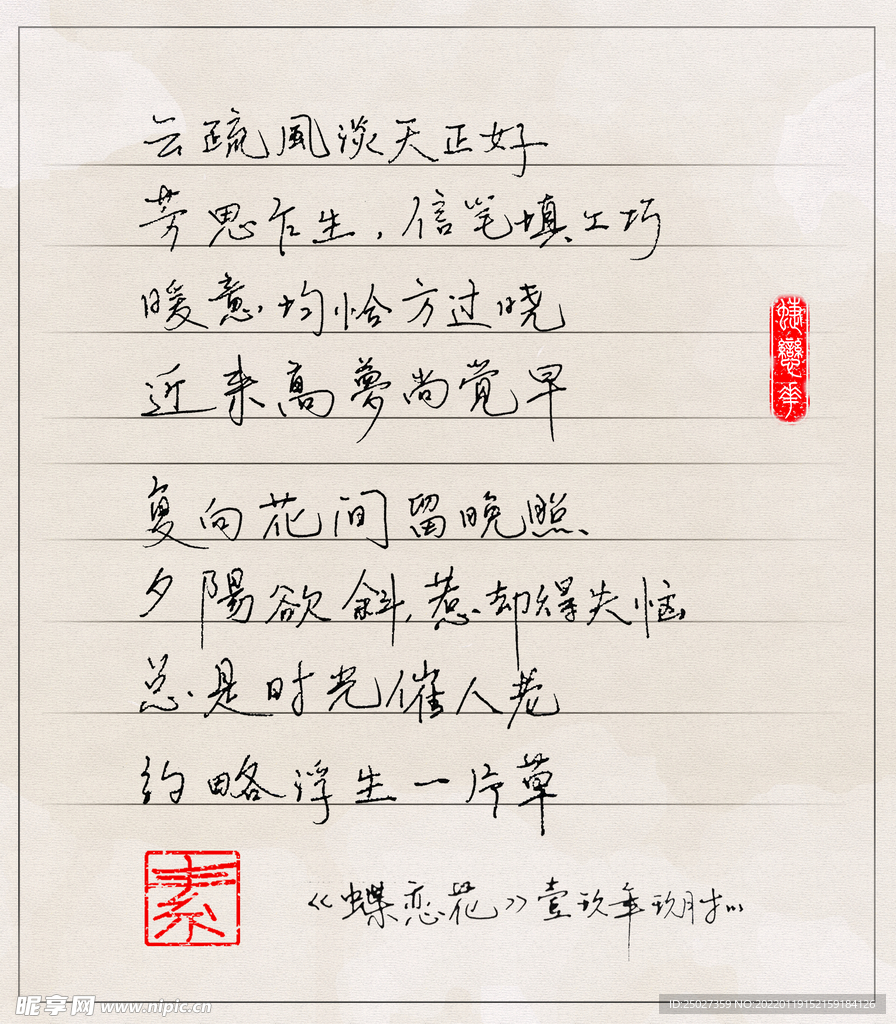 云疏風淡天正好
芳思乍生，信笔填工巧
暖意均恰方过晓
近来高夢尚觉早
复向花间留晚照
夕陽欲斜，惹却得失恼
总是时光催人老
约略浮生一片草
蝶戀花
素
《蝶恋花》壹玖年玖月
昵享网 www.nipic.cn
ID:25027359 NO:20220119152159184126